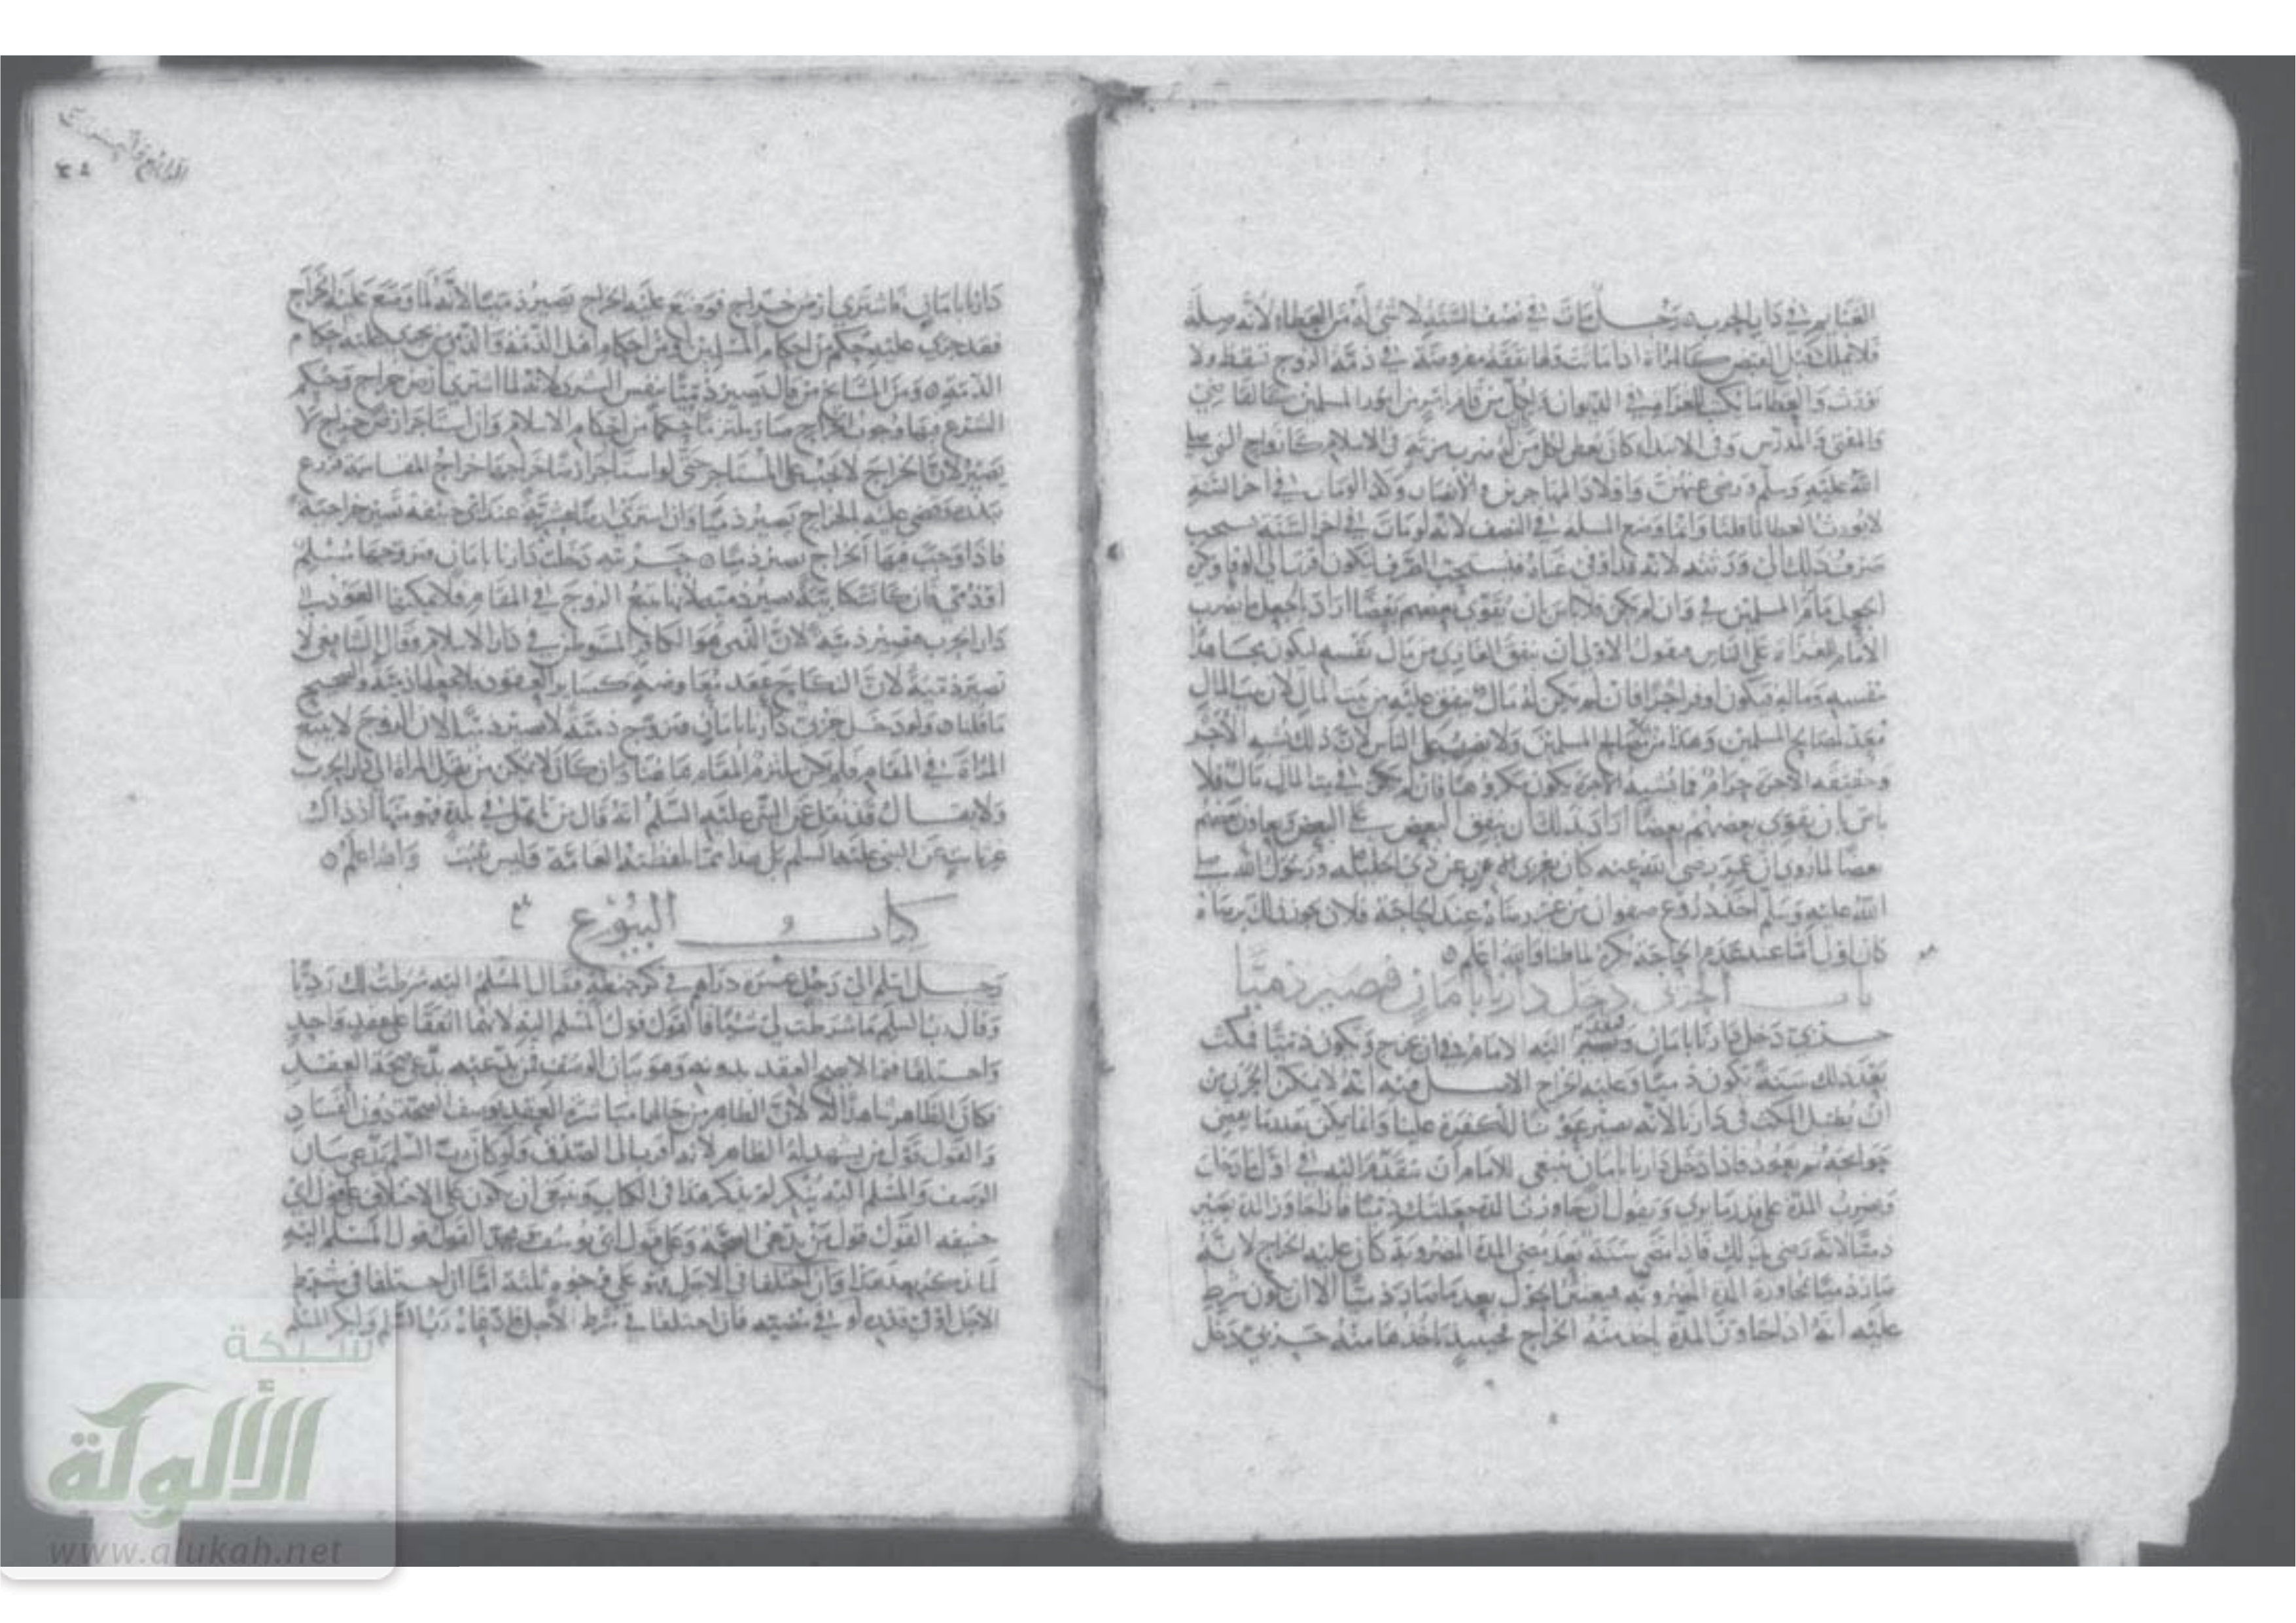 الغنايم في دار الحرب رجل مات في نصف السنة لا شي له من العطاء لانه صلة
فلا تملك قبل القبض كالمراة اذا ماتت ولها نفقة مفروضة في ذمة الزوج تسقط ولا
تورث والعطا ما يكتب للغزاة في الديوان ولكل من قام بامر من امور المسلمين كالقاضي
والمفتي والمدرس وفي الابتداء كان يعطى لكل من له ضرب مزية في الاسلام كازواج النبي صلى
الله عليه وسلم ورضي عنهن واولاد المهاجرين والانصار وكذا لو مات في اخر السنة
لا يورث العطا لما قلنا وانما وضع المسلة في النصف لانه لو مات في اخر السنة يستحب
صرف ذلك الى ورثته لانه قد اوفى عناه فيستحب الصرف ليكون اقرب الى الوفا وكره
الجعل ما دام للمسلمين في وان لم يكن فلا باس ان يقوي بعضهم بعضا اراد بالجعل ما يضرب
الامام للغزاة على الناس فنقول الاولى ان ينفق الغازي من مال نفسه ليكون مجاهدا
بنفسه وماله فيكون اوفر اجرا فان لم يكن له مال ينفق عليه من بيت المال لان بيت المال
معد لمصالح المسلمين وهذا من مصالح المسلمين ولا يضرب على الناس لان ذلك يشبه الاجر
وحقيقة الاجرة حرام فما يشبه الاجرة يكون مكروها فان لم يكن في بيت المال مال فلا
باس ان يقوي بعضهم بعضا اراد بذلك ان ينفق البعض على البعض ويعاون بعضهم
بعضا لما روي ان عمر رضي الله عنه كان يغزي العزب عن ذي الحليلة ورسول الله صلى
الله عليه وسلم اخذ دروع صفوان من غير رضاه عند الحاجة فلان يجوز ذلك برضاه
كان اولى اما عند عدم الحاجة يكره لما قلنا والله اعلم
باب الحربي دخل دارنا بامان فيصير ذميا
حربي دخل دارنا بامان وتقدم اليه الامام في ان يخرج او يكون ذميا فمكث
بعد ذلك سنة يكون ذميا وعليه الخراج الاصل فيه انه لا يمكن الحربي من
ان يطيل المكث في دارنا لانه يصير عونا للكفرة علينا وانما يمكن بقدر ما يقضي
حوايجه ثم يعود فاذا دخل دارنا بامان ينبغي للامام ان يتقدم اليه في اول ما دخل
ويضرب المدة على قدر ما يرى ويقول ان جاوزت المدة جعلتك ذميا فاذا جاوز المدة يصير
ذميا لانه رضي بذلك فاذا مضى سنة بعد مضي المدة المضروبة كان عليه الخراج لانه
صار ذميا بمجاوزة المدة المضروبة فيعتبر الحول بعد ما صار ذميا الا ان يكون شرط
عليه انه اذا جاوز المدة ياخذ منه الخراج فحينيذ ياخذها منه حربي دخل
الرابع والعشرون
دارنا بامان فاشترى ارض خراج فوضع عليه الخراج يصير ذميا لانه لما وضع عليه الخراج
فقد جرى عليه حكم من احكام المسلمين اذ من احكام اهل الذمة والذمي من يجري عليه احكام
الذمة ومن المشايخ من قال يصير ذميا بنفس الشرى لانه لما اشترى ارض خراج وحكم
الشرع فيها وجوب الخراج صار ملتزما حكما من احكام الاسلام وان استاجر ارض خراج لا
يصير لان الخراج لا يجب على المستاجر حتى لو استاجر ارضا خراجها خراج المقاسمة فزرع
ببذره وقضي عليه الخراج يصير ذميا وان اشترى ارضا عشرية عند ابي حنيفة تصير خراجية
فاذا وجب فيها الخراج يصير ذميا حربية دخلت دارنا بامان فتزوجها مسلم
او ذمي كانت كتابية تصير ذمية لانها تتبع الزوج في المقام فلا يمكنها العود الى
دار الحرب فتصير ذمية لان الذمي هو الكافر المتوطن في دار الاسلام وقال الشافعي لا
تصير ذمية لان النكاح عقد معاوضة كساير العقود فلا يجعلها ذمية والصحيح
ما قلنا ولو دخل حربي دارنا بامان فتزوج ذمية لا يصير ذميا لان الزوج لا يتبع
المراة في المقام فلم يكن ملتزم المقام هاهنا وان كان لا يمكن من نقل المراة الى دار الحرب
ولا يقال قد نقل عن النبي عليه السلم انه قال من تاهل في بلدة فهو منها اذ ذاك
غير ثابت عن النبي عليه السلم بل هذا مما لفظته العامة فليس بثبت والله اعلم
كتاب البيوع
رجل اسلم الى رجل عشرة دراهم في كر حنطة فقال المسلم اليه شرطت لك رديا
وقال رب السلم ما شرطت لي شيا فالقول قول المسلم اليه لانهما اتفقا على عقد واحد
واختلفا فيما لا يصح العقد بدونه وهو بيان الوصف فمن يدعيه يدعي صحة العقد
فكان الظاهر شاهدا له لان الظاهر من حالهما مباشرة العقد بوصف الصحة دون الفساد
والقول قول من يشهد له الظاهر لانه اقرب الى الصدق ولو كان رب السلم يدعي بيان
الوصف والمسلم اليه ينكر لم يذكر هذا في الكتاب وينبغي ان يكون على الاختلاف على قول ابي
حنيفة القول قول من يدعي الصحة وعلى قول ابي يوسف ومحمد القول قول المسلم اليه
لما نذكر بعد هذا وان اختلفا في الاجل فهو على وجوه ثلثة اما ان اختلفا في شرط
الاجل او في قدره او في مضيه فان اختلفا في شرط الاجل فادعاه رب السلم وانكر المسلم
شبكة
الألوكة
www.alukah.net